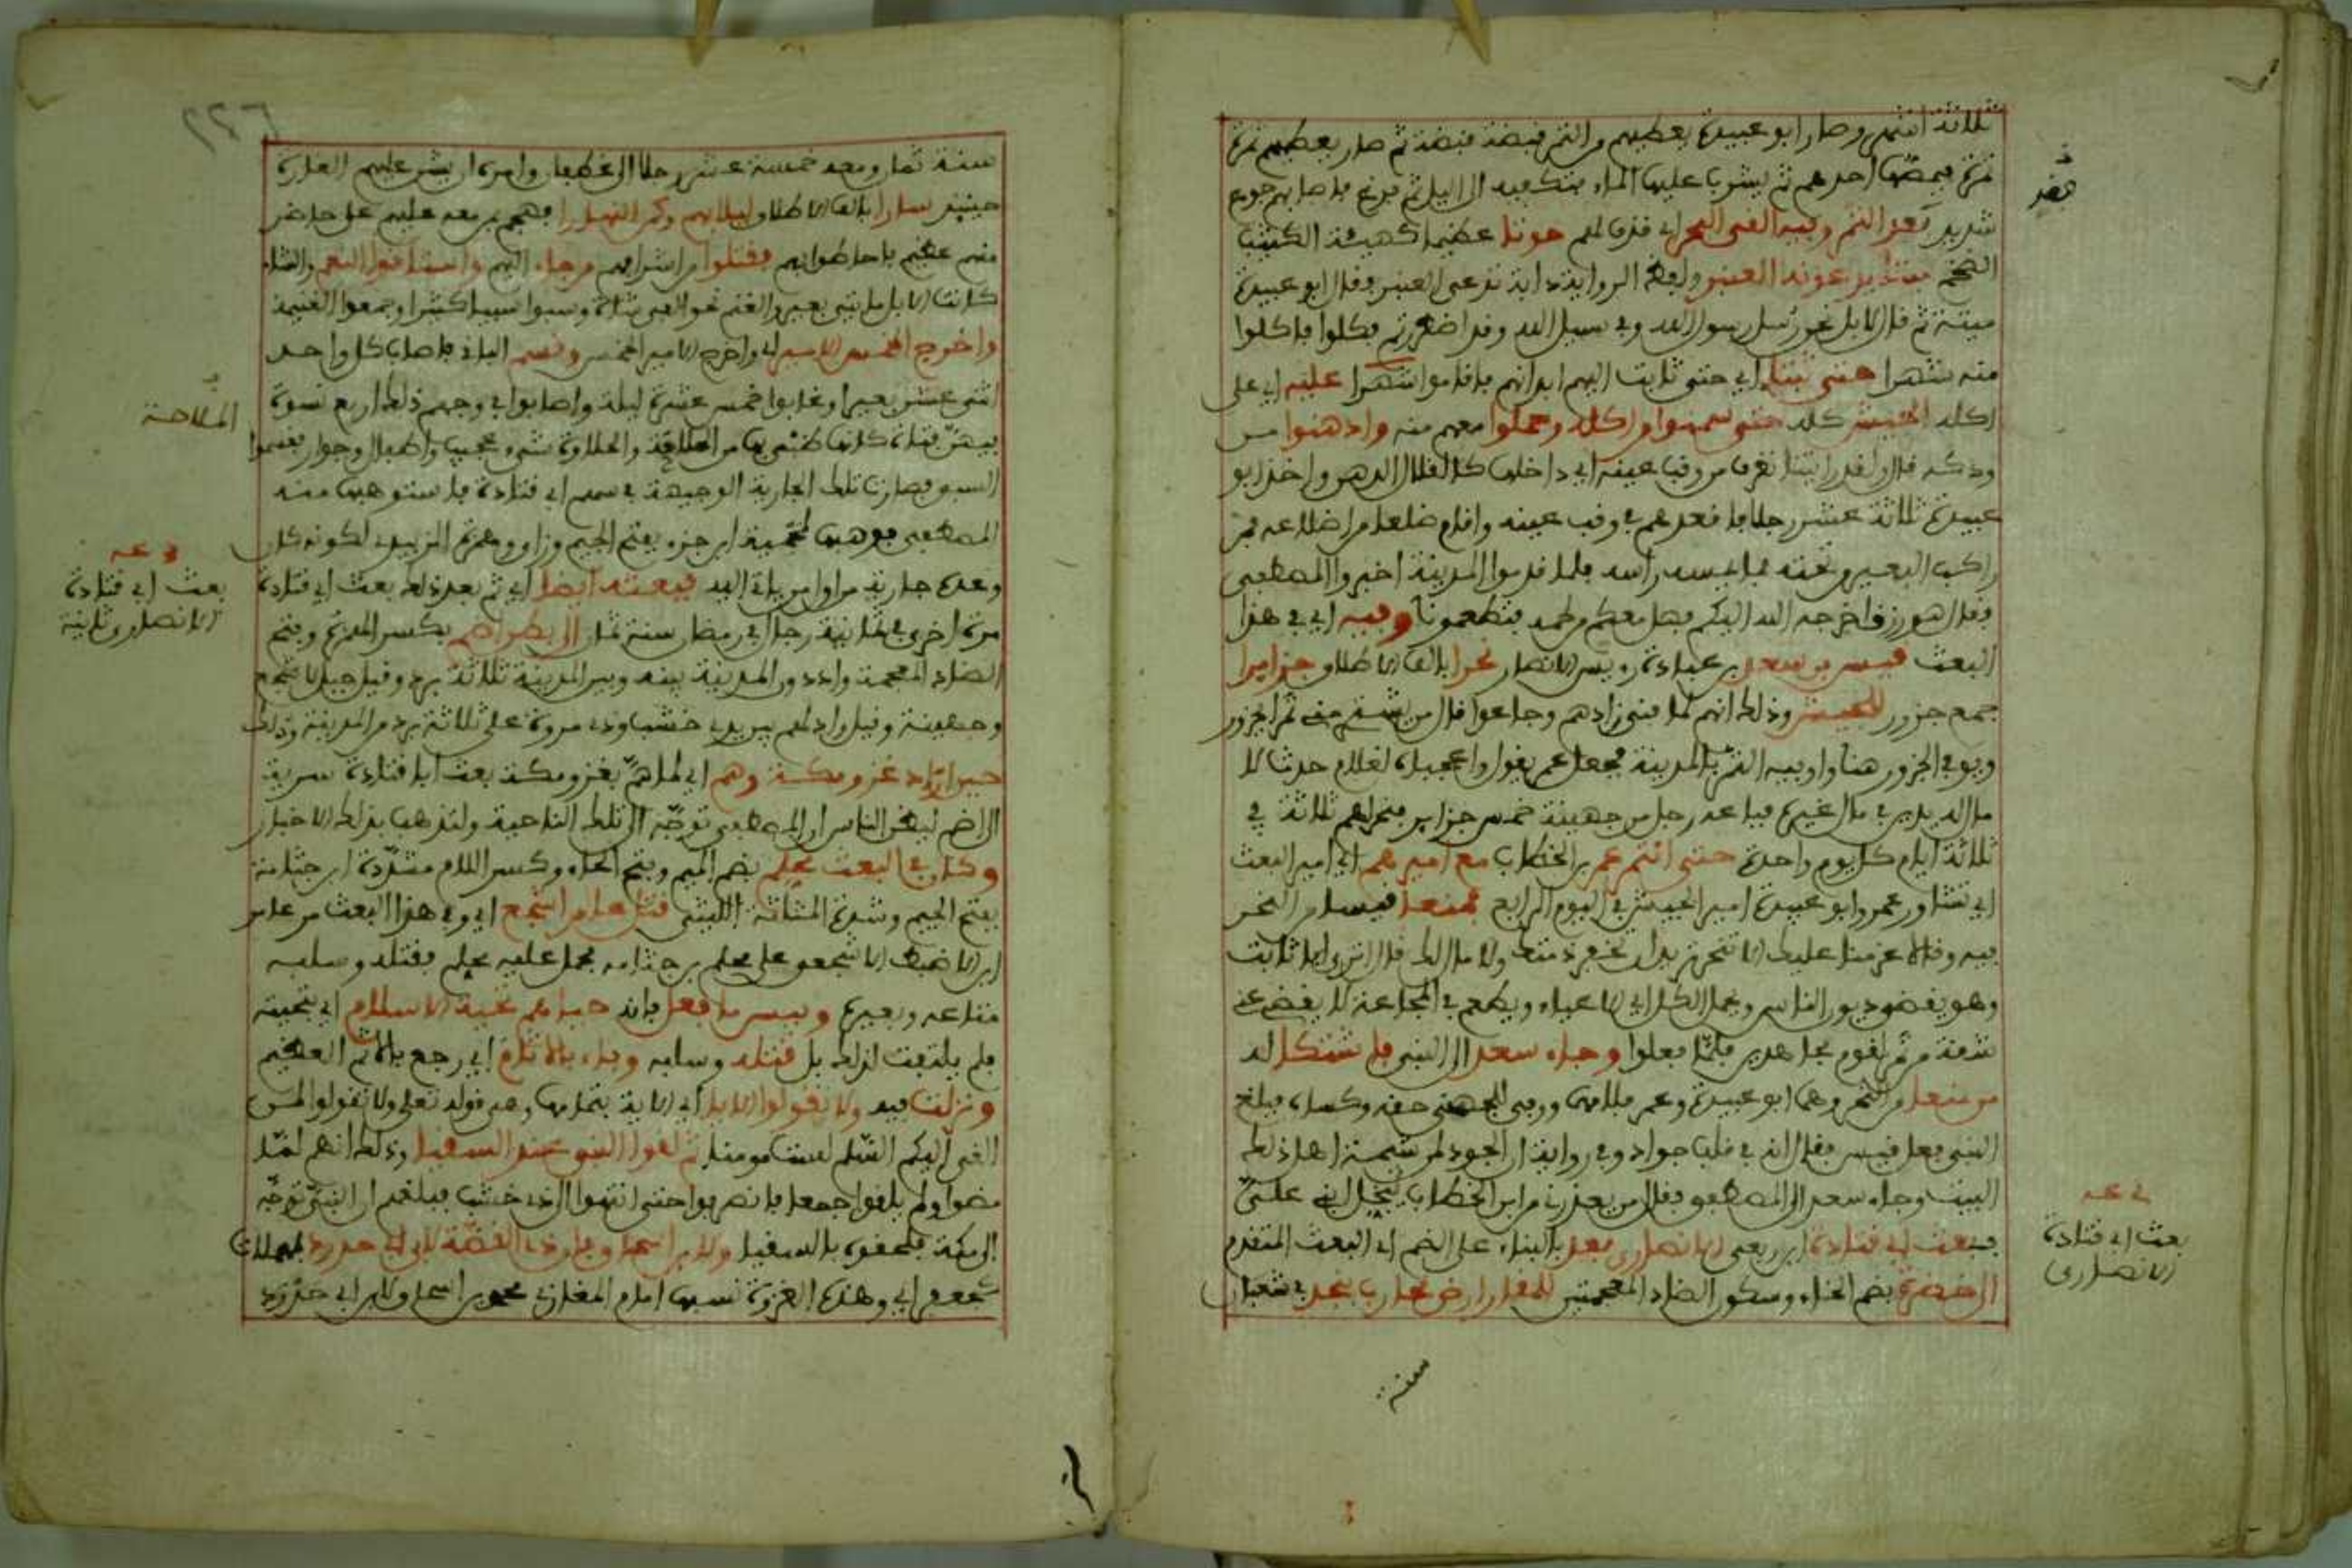 ثلاثة اشهر وصار ابو عبيدة يعطيهم من التمر قبضة قبضة ثم صار يعطيهم تمرة
تمرة فيمصها احدهم ثم يشرب عليها الماء فتكفيه الى الليل ثم فرغ فاصابهم جوع
فقد
شديد بعد التمر وفيه القى البحر اي قذف لهم حوتا عظيما كهيئة الكثيب
الضخم يدعونه العنبر ولفظ الرواية دابة تدعى العنبر فقال ابو عبيدة
ميتة ثم قال لا بل نحن رسل رسول الله وفي سبيل الله وقد اضطررتم فكلوا فاكلوا
منه شهرا حتى ثابت اليهم ابدانهم فاقاموا شهرا عليه اي على
اكله الجيش كله حتى سمنوا من اكله وحملوا معهم منه وادهنوا من
ودكه قال ولقد رايتنا نغرف من وقب عينه اي داخلها كالقلال الدهن واخذ ابو
عبيدة ثلاثة عشر رجلا فاقعدهم في وقب عينه واقام ضلعا من اضلاعه فمر
راكب البعير تحته فلم يمسه راسه فلما قدموا المدينة اخبروا المصطفى
فقال هو رزق اخرجه الله اليكم فهل معكم من لحمه فتطعمونا وفيه اي في هذا
البعث قيس بن سعد بن عبادة رئيس الانصار نحرا بالف الاطلاق جزايرا
جمع جزور للجيش وذلك انهم لما فنى زادهم وجاعوا قال من يشتري مني تمرا بجزور
ويوفي الجزور هنا واوفيه التمر بالمدينة فجعل عمر يقول واعجباه لغلام حدث لا
مال له يدين في مال غيره فباعه رجل من جهينة خمس جزاير فنحر لهم ثلاثة في
ثلاثة ايام كل يوم واحدة حتى ائتمر عمر بن الخطاب مع اميرهم اي امير البعث
اي تشاور عمر وابو عبيدة امير الجيش في اليوم الرابع فمنعا قيسا من النحر
فيه وقالا عزمنا عليك الا تنحر تريد ان تخفر ذمتك ولا مال لك قال اترى ابا ثابت
وهو يقضي ديون الناس ويحمل الكل اي الاعياء ويطعم في المجاعة لا يقضي عني
شقة من تمر لقوم مجاهدين فلما فعلوا وجاء سعد الى النبي فاشتكا له
من منعا من النحر وهما ابو عبيدة وعمر فلامهما ووفى للجهني حقه وكساه فبلغ
النبي فعل قيس فقال انه في قلب جواد وفي رواية ان الجود لمن شيمة اهل ذلك
البيت وجاء سعد الى المصطفى فقال من يعذرني من ابن الخطاب يبخل ابني علي
فبعث ابي قتادة بن ربعي الانصاري بعد بالبناء على الضم اي البعث المتقدم
بعث ابي قتادة
الانصاري
الى خضرة بضم الخاء وسكون الضاد المعجمتين ارض محارب بنجد في شعبان
سنة
٢٢٦
سنة ثمان ومعه خمسة عشر رجلا الى غطفان وامره ان يشن عليهم الغارة
حينئذ سارا بالف الاطلاق ليلا بهم وكمن النهارا فهجم بمن معه عليهم على حاضر
منهم عظيم فاحاطوا بهم فقتلوا من اشرافهم من جاء اليهم واستاقوا النعم والشاء
كانت الابل مايتي بعير والغنم نحو الفي شاة وسبوا سبيا كثيرا وجمعوا الغنيمة
واخرج الخمس الامير اي واخرج الامير الخمس وقسم الباقي فاصاب كل واحد
اثنى عشر بعيرا وغابوا خمس عشرة ليلة واصابوا في وجههم ذلك اربع نسوة
فيهن فتاة كانها ظبي بها من الملاحة والحلاوة شيء عجيب واطفال وجوار فقسموا
الملاحة
السبي فصارت تلك الجارية الوجيهة في سهم ابي قتادة فاستوهبها منه
المصطفى فوهبها لمحمية بن جزء بفتح الجيم وزاي وهمزة الزبيدي لكونه كان
وعده جارية من اول فيء يفيء الله فبعثه ايضا اي ثم بعد ذلك بعث ابي قتادة
بعث ابي قتادة
الانصاري ثانية
مرة اخرى في ثمانية رجال في رمضان سنة ثمان الى بطن اضم بكسر الهمزة وفتح
الضاد المعجمة واد دون المدينة بينه وبين المدينة ثلاثة برد وقيل جبل لاشجع
وجهينة وقيل واد لهم بين ذي خشب وذي مروة على ثلاثة برد من المدينة وذلك
حين اراد غزو مكة وهم اي لما هم بغزو مكة بعث ابا قتادة سرية
الى اضم ليظن الناس ان المصطفى توجه الى تلك الناحية ولتذهب بذلك الاخبار
وكان في البعث محلم بضم الميم وفتح الحاء وكسر اللام مشددة ابن جثامة
بفتح الجيم وشدة المثلثة الليثي قتل عامر اشجع اي وفي هذا البعث مر عامر
ابن الاضبط الاشجعي على محلم بن جثامة فحمل عليه محلم فقتله وسلبه
متاعه وبعيره وبيس ما فعل فانه حياهم تحية الاسلام اي بتحيته
فلم يلتفت لذلك بل قتله وسلبه وباء بالاثام اي رجع بالاثم العظيم
ونزلت فيه ولا تقولوا الاية اي الاية بتمامها وهي قوله تعالى ولا تقولوا لمن
القى اليكم السلم لست مومنا ثم لقوا النبي عند السقيا وذلك انهم لما
مضوا ولم يلقوا جمعا فانصرفوا حتى انتهوا الى ذي خشب فبلغهم ان النبي توجه
الى مكة فلحقوه بالسقيا ولابن اسحاق هاذي القصة لابن ابي حدرد بمهملات
كجعفر اي وهذه الغزوة نسبها امام المغازي محمد بن اسحاق لابن ابي حدرد